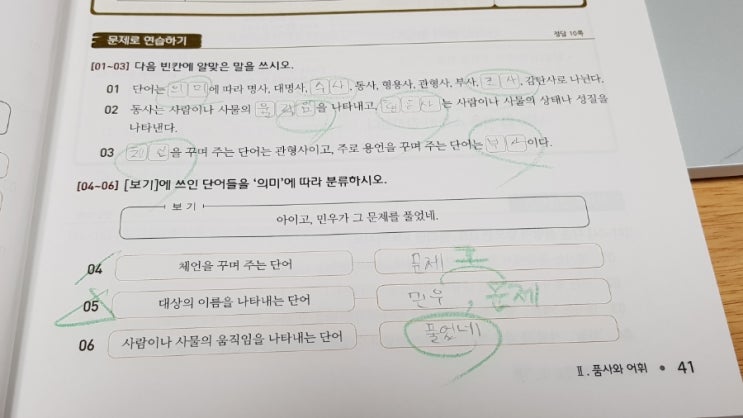 문제로 연습하기
정답 10쪽
[01~03] 다음 빈칸에 알맞은 말을 쓰시오.
01 단어는 의미에 따라 명사, 대명사, 수사, 동사, 형용사, 관형사, 부사, 조사, 감탄사로 나뉜다.
02 동사는 사람이나 사물의 움직임을 나타내고, 형용사는 사람이나 사물의 상태나 성질을
나타낸다.
03 체언을 꾸며 주는 단어는 관형사이고, 주로 용언을 꾸며 주는 단어는 부사이다.
[04~06] [보기]에 쓰인 단어들을 '의미'에 따라 분류하시오.
보기
아이고, 민우가 그 문제를 풀었네.
04 체언을 꾸며 주는 단어 문제 그
05 대상의 이름을 나타내는 단어 민우, 문제
06 사람이나 사물의 움직임을 나타내는 단어 풀었네
Ⅱ. 품사와 어휘 • 41